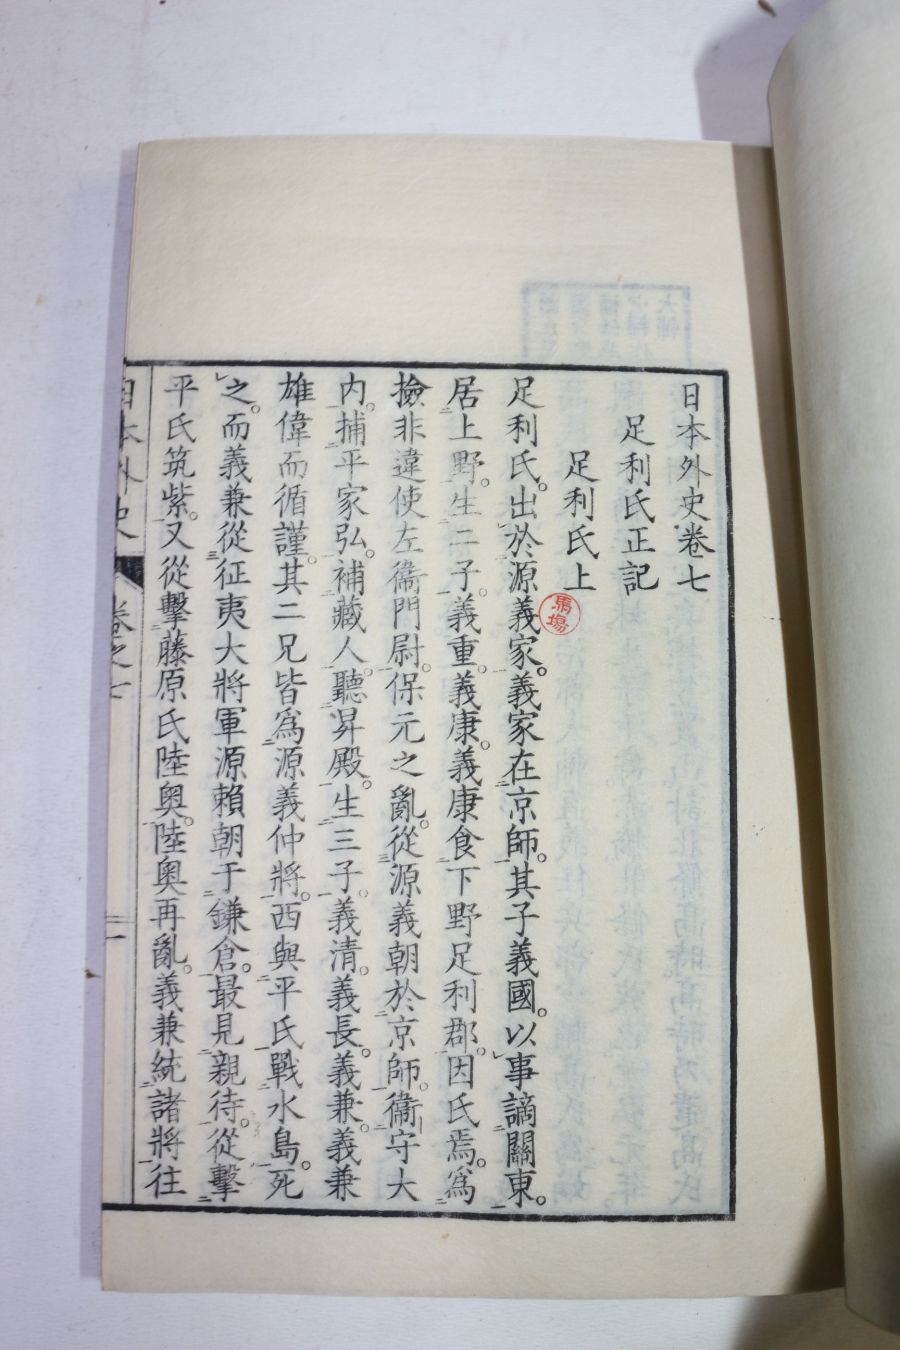 日本外史卷七
足利氏正記
足利氏上
馬場
足利氏。出於源義家。義家在京師。其子義國。以事謫關東。
居上野。生二子。義重。義康。義康食下野足利郡。因氏焉。爲
撿非違使左衞門尉。保元之亂。從源義朝於京師。衞守大
内。捕平家弘。補藏人。聽昇殿。生三子。義清。義長。義兼。義兼
雄偉而循謹。其二兄皆爲源義仲將。西與平氏戰水島。死
之。而義兼從征夷大將軍源賴朝于鎌倉。最見親待。從擊
平氏筑紫。又從擊藤原氏陸奥。陸奥再亂。義兼統諸將往
日本外史
卷之七
一